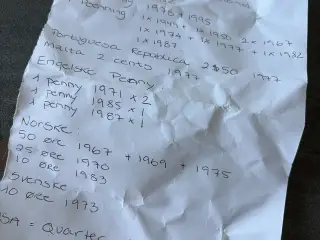 1976 + 1995
1 x 1941 1 x 1950 2 x 1967
1 x 1974 + 1 x 1977 + 1 x 1982
1 x 1987
Portuguesa Republica 2$50 1977
Malta 2 cents 1977
Engelske Penny
1 penny 1971 x 2
1 penny 1985 x 1
1 penny 1987 x 1
Norske
50 øre 1967 + 1969 + 1975
25 øre 1970
10 øre 1983
Svenske
10 øre 1973
USA = Quarter